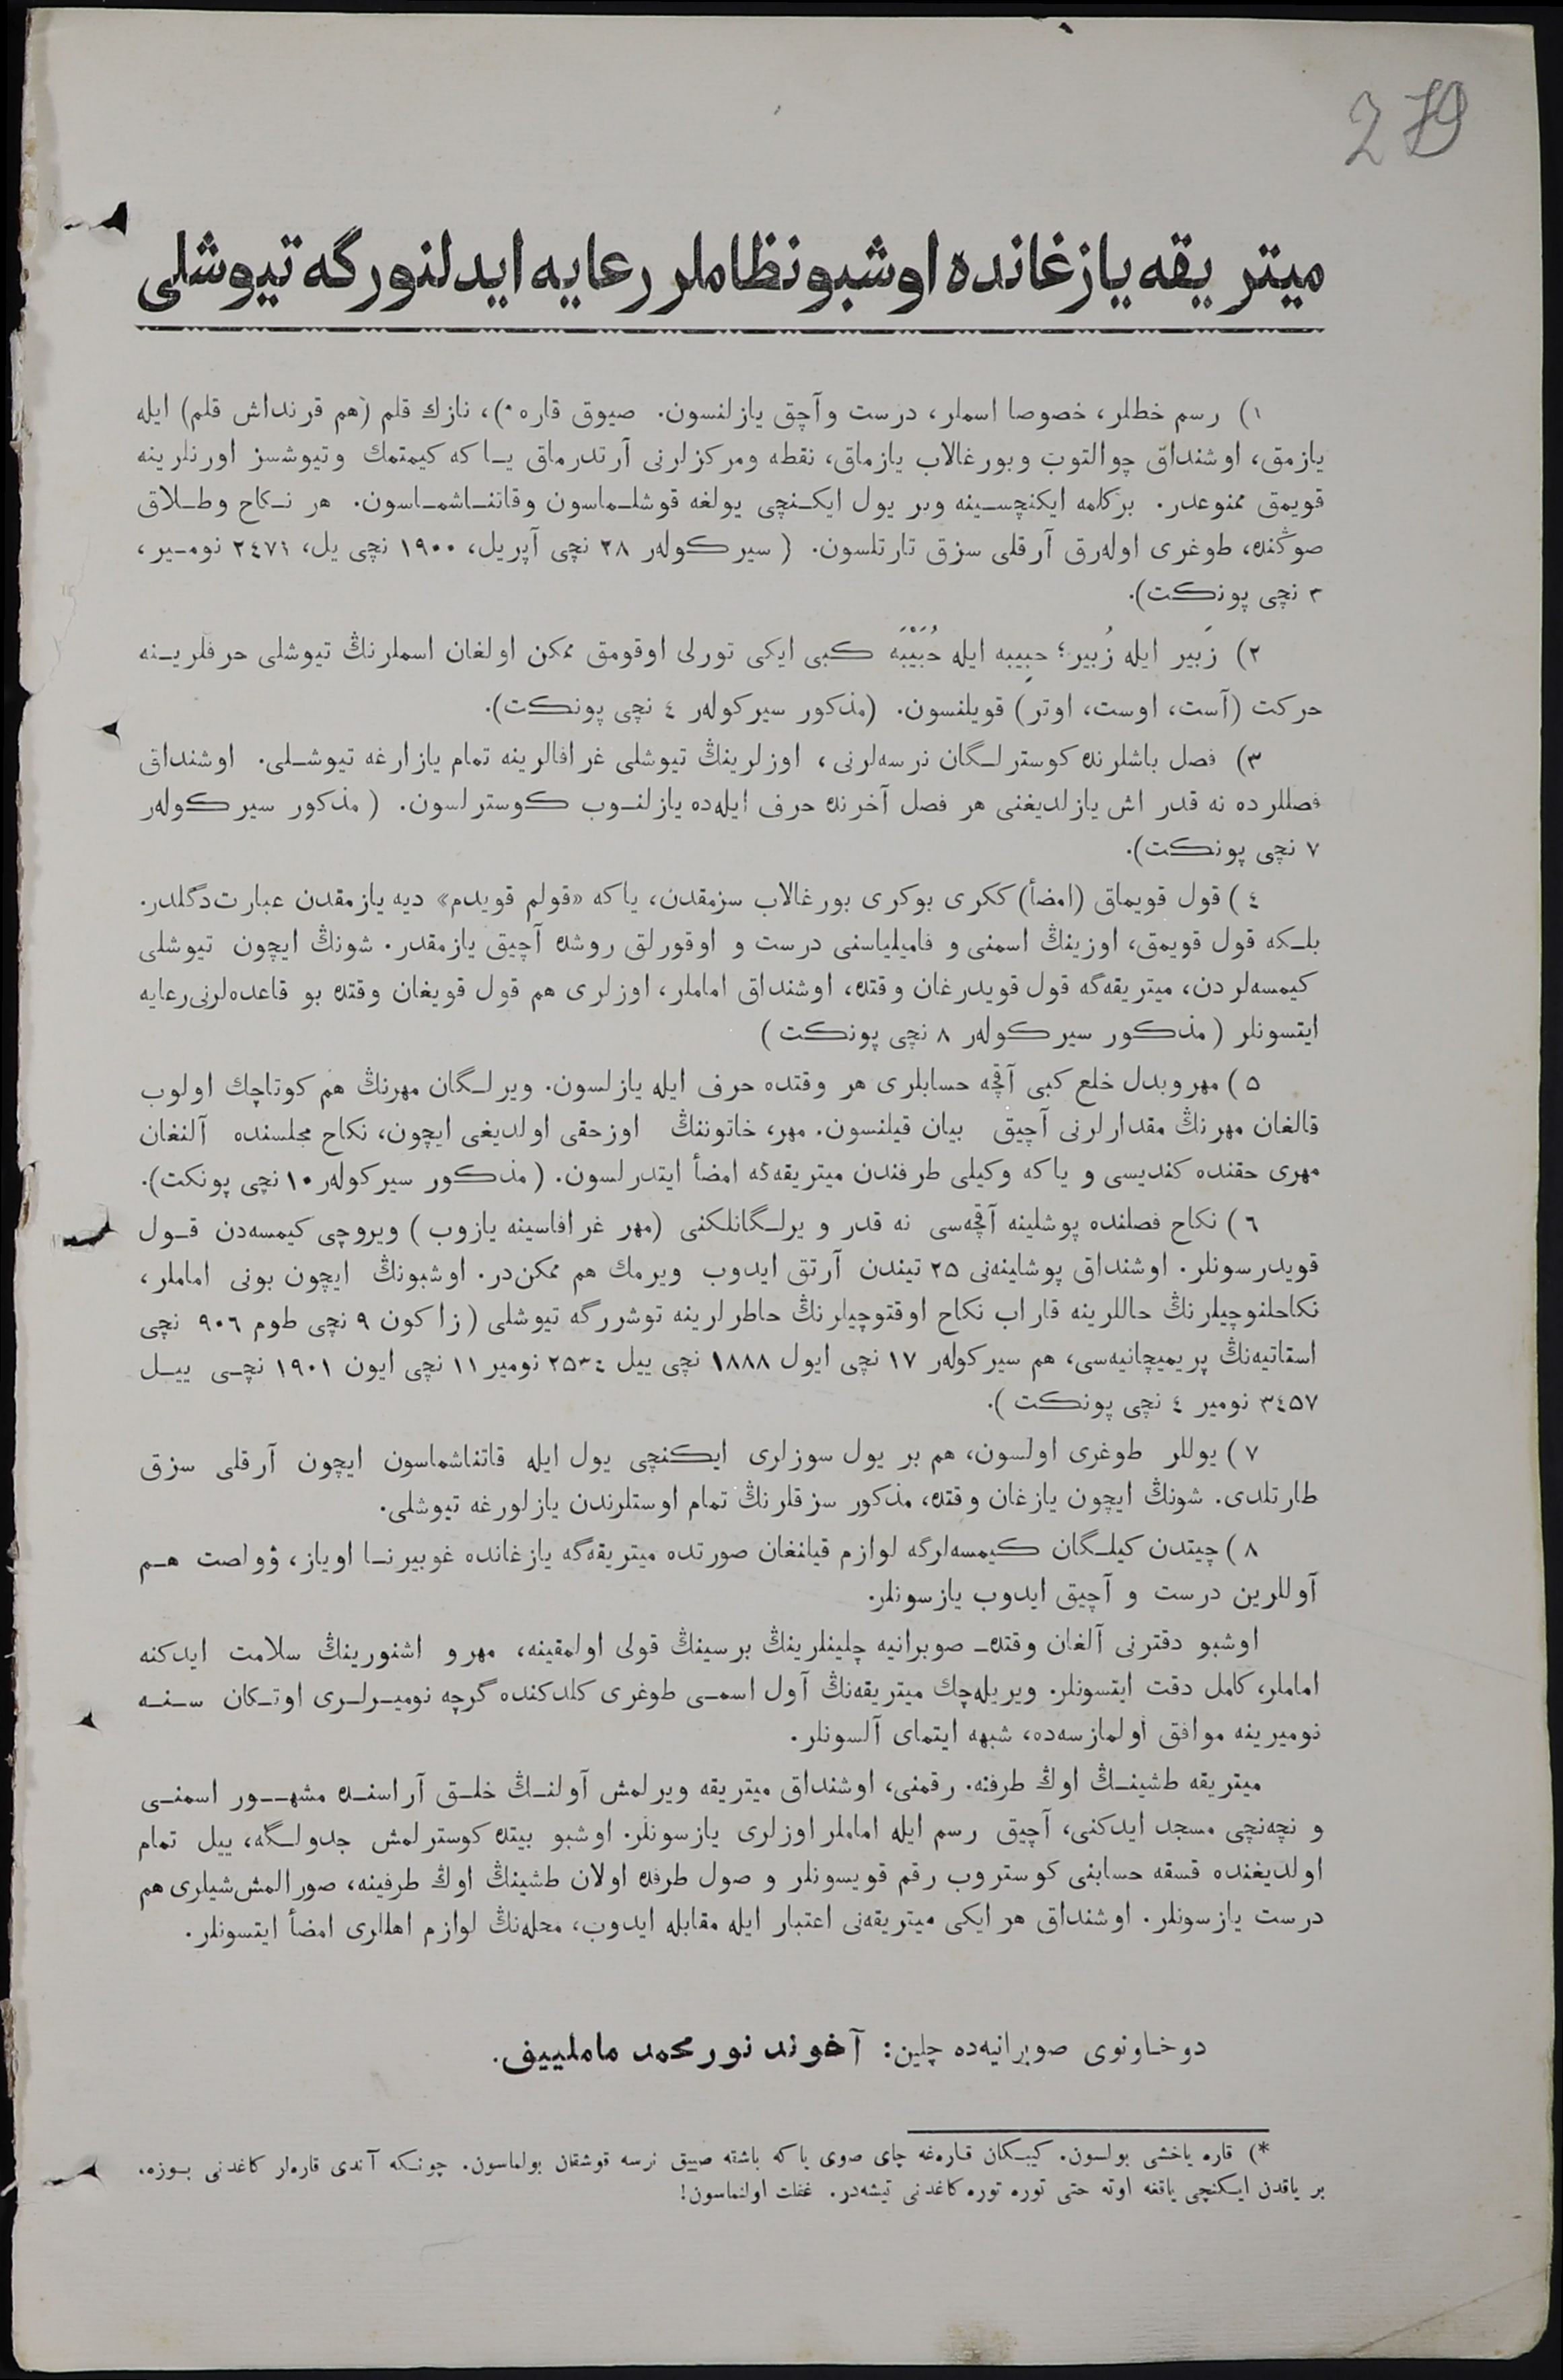 279
ميتريقه يازغانده اوشبو نظاملر رعايه ايدلنورگه تيوشلى
١) رسم خطلر، خصوصا اسملر، درست وآچق يازلنسون. صيوق قاره *)، نازك قلم (هم قرنداش قلم) ايله
يازمق، اوشنداق چوالتوب وبورغالاب يازماق، نقطه ومركزلرنى آرتدرماق يـا كه كيمتمك وتيوشسز اورنلرينه
قويمق ممنوعدر. بركلمه ايكنچسـينه وبر يول ايكـنچى يولغه قوشلـماسون وقاتنـاشمـاسون. هر نـكاح وطـلاق
صوڭنده، طوغرى اولەرق آرقلى سزق تارتلسون. (سيركولەر ٢٨ نچى آپريل، ١٩٠٠ نچى يل، ٢٤٧٦ نومـير،
٣ نچى پونكت).
٢) زَبير ايله زُبير؛ حبِيبه ايله حُبَيْبَه كبى ايكى تورلى اوقومق ممكن اولغان اسملرنڭ تيوشلى حرفلريـنه
حركت (آست، اوست، اوتر) قويلنسون. (مذكور سيركولەر ٤ نچى پونكت).
٣) فصل باشلرنده كوسترلـگان نرسەلرنى، اوزلرينڭ تيوشلى غرافالرينه تمام يازارغه تيوشـلى. اوشنداق
فصللرده نه قدر اش يازلديغنى هر فصل آخرنده حرف ايلەده يازلنـوب كوسترلسون. (مذكور سيركولەر
٧ نچى پونكت).
٤) قول قويماق (امضأ) ككرى بوكرى بورغالاب سزمقدن، ياكه «قولم قويدم» ديه يازمقدن عبارت دگلدر.
بلـكه قول قويمق، اوزينڭ اسمنى و فاميلياسنى درست و اوقورلق روشده آچيق يازمقدر. شونڭ ايچون تيوشلى
كيمسەلردن، ميتريقەگه قول قويدرغان وقتده، اوشنداق اماملر، اوزلرى هم قول قويغان وقتده بو قاعدەلرنى رعايه
ايتسونلر (مذكور سيركولەر ٨ نچى پونكت)
٥) مهر وبدل خلع كبى آقچه حسابلرى هر وقتده حرف ايله يازلسون. ويرلـگان مهرنڭ هم كوتاچك اولوب
قالغان مهرنڭ مقدارلرنى آچيق بيان قيلنسون. مهر، خاتوننڭ اوزحقى اولديغى ايچون، نكاح مجلسنده آلنغان
مهرى حقنده كنديسى و ياكه وكيلى طرفندن ميتريقەگه امضأ ايتدرلسون. (مذكور سيركولەر ١٠ نچى پونكت).
٦) نكاح فصلنده پوشلينه آقچەسى نه قدر و يرلـگانلكنى (مهر غرافاسينه يازوب) ويروچى كيمسەدن قـول
قويدرسونلر. اوشنداق پوشلينەنى ٢٥ تيندن آرتق ايدوب ويرمك هم ممكن‌در. اوشبونڭ ايچون بونى اماملر،
نكاحلنوچيلرنڭ حاللرينه قاراب نكاح اوقتوچيلرنڭ خاطرلرينه توشررگه تيوشلى (زاكون ٩ نچى طوم ٩٠٦ نچى
استاتيەنڭ پريميچانيەسى، هم سيركولەر ١٧ نچى ايول ١٨٨٨ نچى ييل ٢٥٣٤ نومير ١١ نچى ايون ١٩٠١ نچـى ييـل
٣٤٥٧ نومير ٤ نچى پونكت).
٧) يوللر طوغرى اولسون، هم بر يول سوزلرى ايكنچى يول ايله قاتناشماسون ايچون آرقلى سزق
طارتلدى. شونڭ ايچون يازغان وقتده، مذكور سزقلرنڭ تمام اوستلرندن يازلورغه تيوشلى.
٨) چيتدن كيلـگان كيمسەلرگه لوازم قيلنغان صورتده ميتريقەگه يازغانده غوبيرنـا اوياز، ؤولصت هـم
آوللرين درست و آچيق ايدوب يازسونلر.
اوشبو دفترنى آلغان وقتده ـ صوبرانيه چلينلرينڭ برسينڭ قولى اولمقينه، مهر و اشنورينڭ سلامت ايدكنه
اماملر، كامل دقت ايتسونلر. ويريلەچك ميتريقەنڭ آول اسمـى طوغرى كلدكنده گرچه نوميـرلـرى اوتـكان سـنـه
نوميرينه موافق اولمازسەده، شبهه ايتماى آلسونلر.
ميتريقه طشينـڭ اوڭ طرفنه. رقمنى، اوشنداق ميتريقه ويرلمش آولنـڭ خلـق آراسنـده مشهـور اسمنـى
و نچەنچى مسجد ايدكنى، آچيق رسم ايله اماملر اوزلرى يازسونلر. اوشبو بيتده كوسترلمش جدولـگه، ييل تمام
اولديغنده قسقه حسابنى كوستروب رقم قويسونلر و صول طرفده اولان طشينڭ اوڭ طرفينه، صورالمش شيلرى هم
درست يازسونلر. اوشنداق هر ايكى ميتريقەنى اعتبار ايله مقابله ايدوب، محلەنڭ لوازم اهللرى امضأ ايتسونلر.
دوخاونوى صوبرانيەده چلين: آخوند نورمحمد ماملييف.
*) قاره ياخشى بولسون. كيبـكان قارەغه چاى صوى ياكه باشقه صييق نرسه قوشقان بولماسون. چونـكه آندى قارەلر كاغدنى بـوزه،
بر ياقدن ايـكنچى ياقغه اوته حتى توره توره كاغدنى تيشەدر. غفلت اولنماسون!